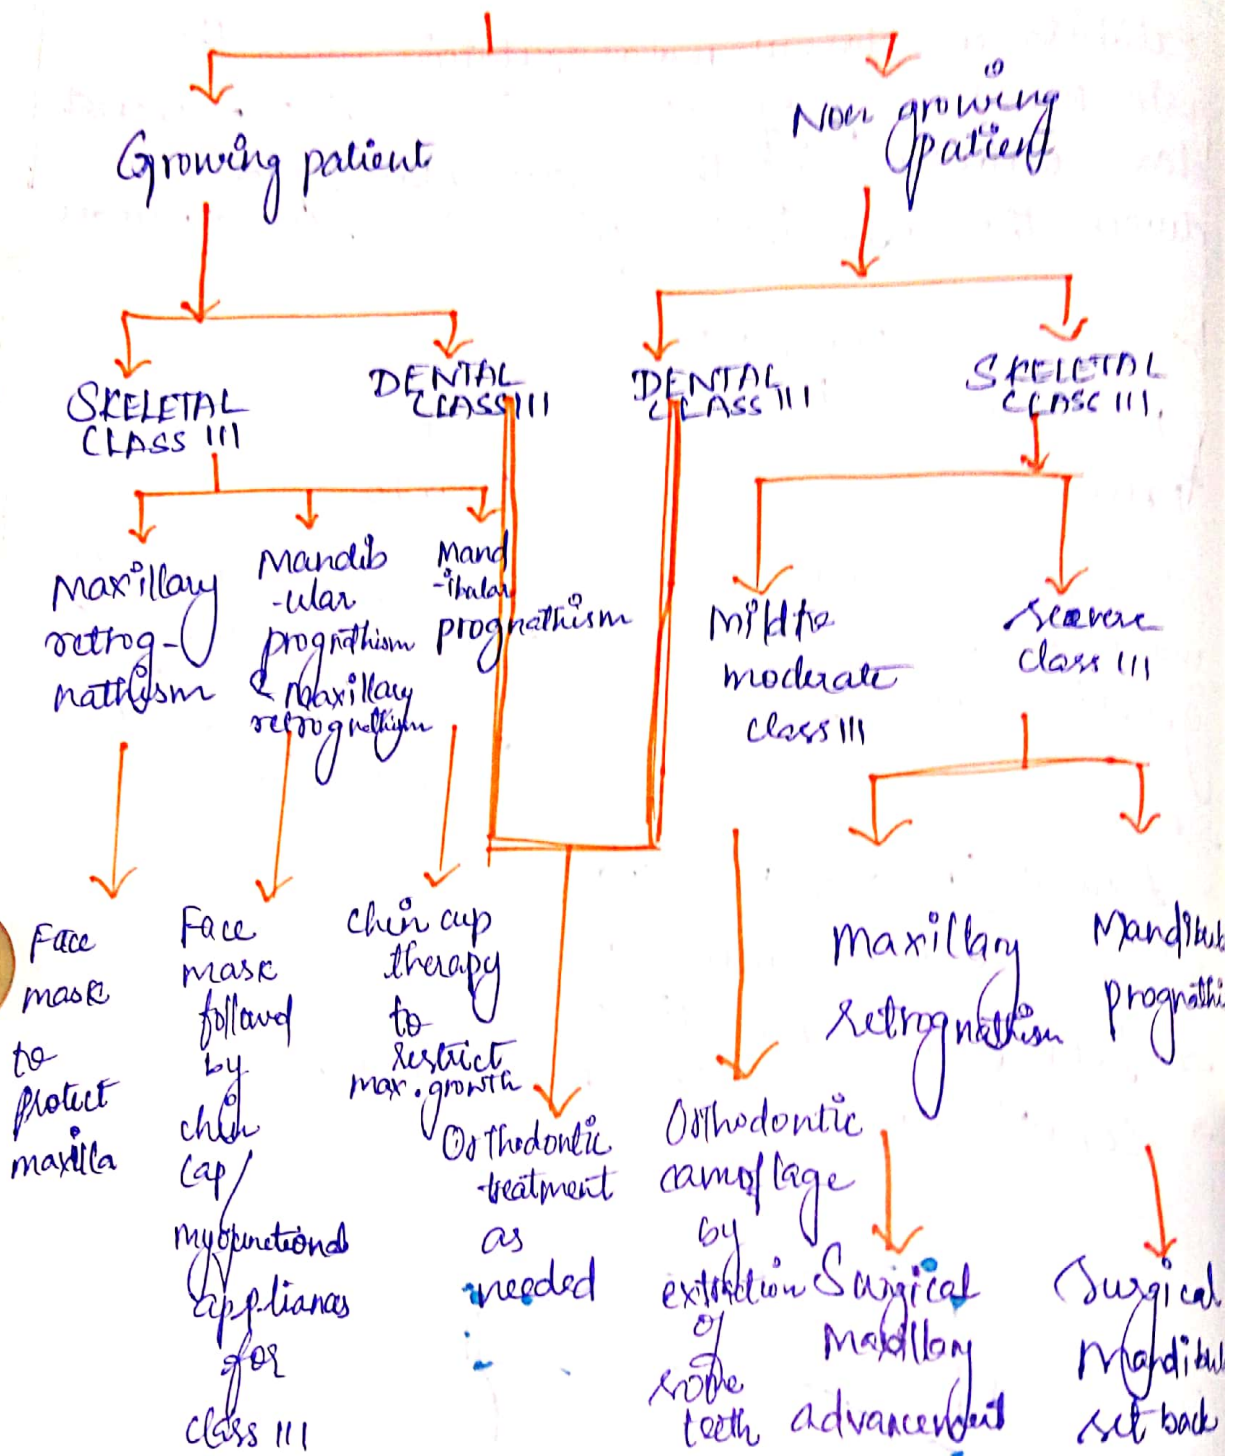 Growing patient
Non growing
patient
SKELETAL
CLASS III
DENTAL
CLASS III
DENTAL
CLASS III
SKELETAL
CLASS III.
Maxillary
retrog-
nathism
Mandib
-ular
prognathism
& Maxillary
retrognathism
Mand
-ibular
prognathism
Mild to
moderate
class III
severe
class III
Face
mask
to
protect
maxilla
Face
mask
followed
by
chin
cap/
myofunctional
appliances
for
class III
chin cup
therapy
to
restrict
max. growth
Orthodontic
treatment
as
needed
Orthodontic
camoflage
by
extraction
of
some
teeth
Maxillary
retrognathism
Surgical
Maxillary
advancement
Mandibul
prognathi
Surgical
Mandibul
set back